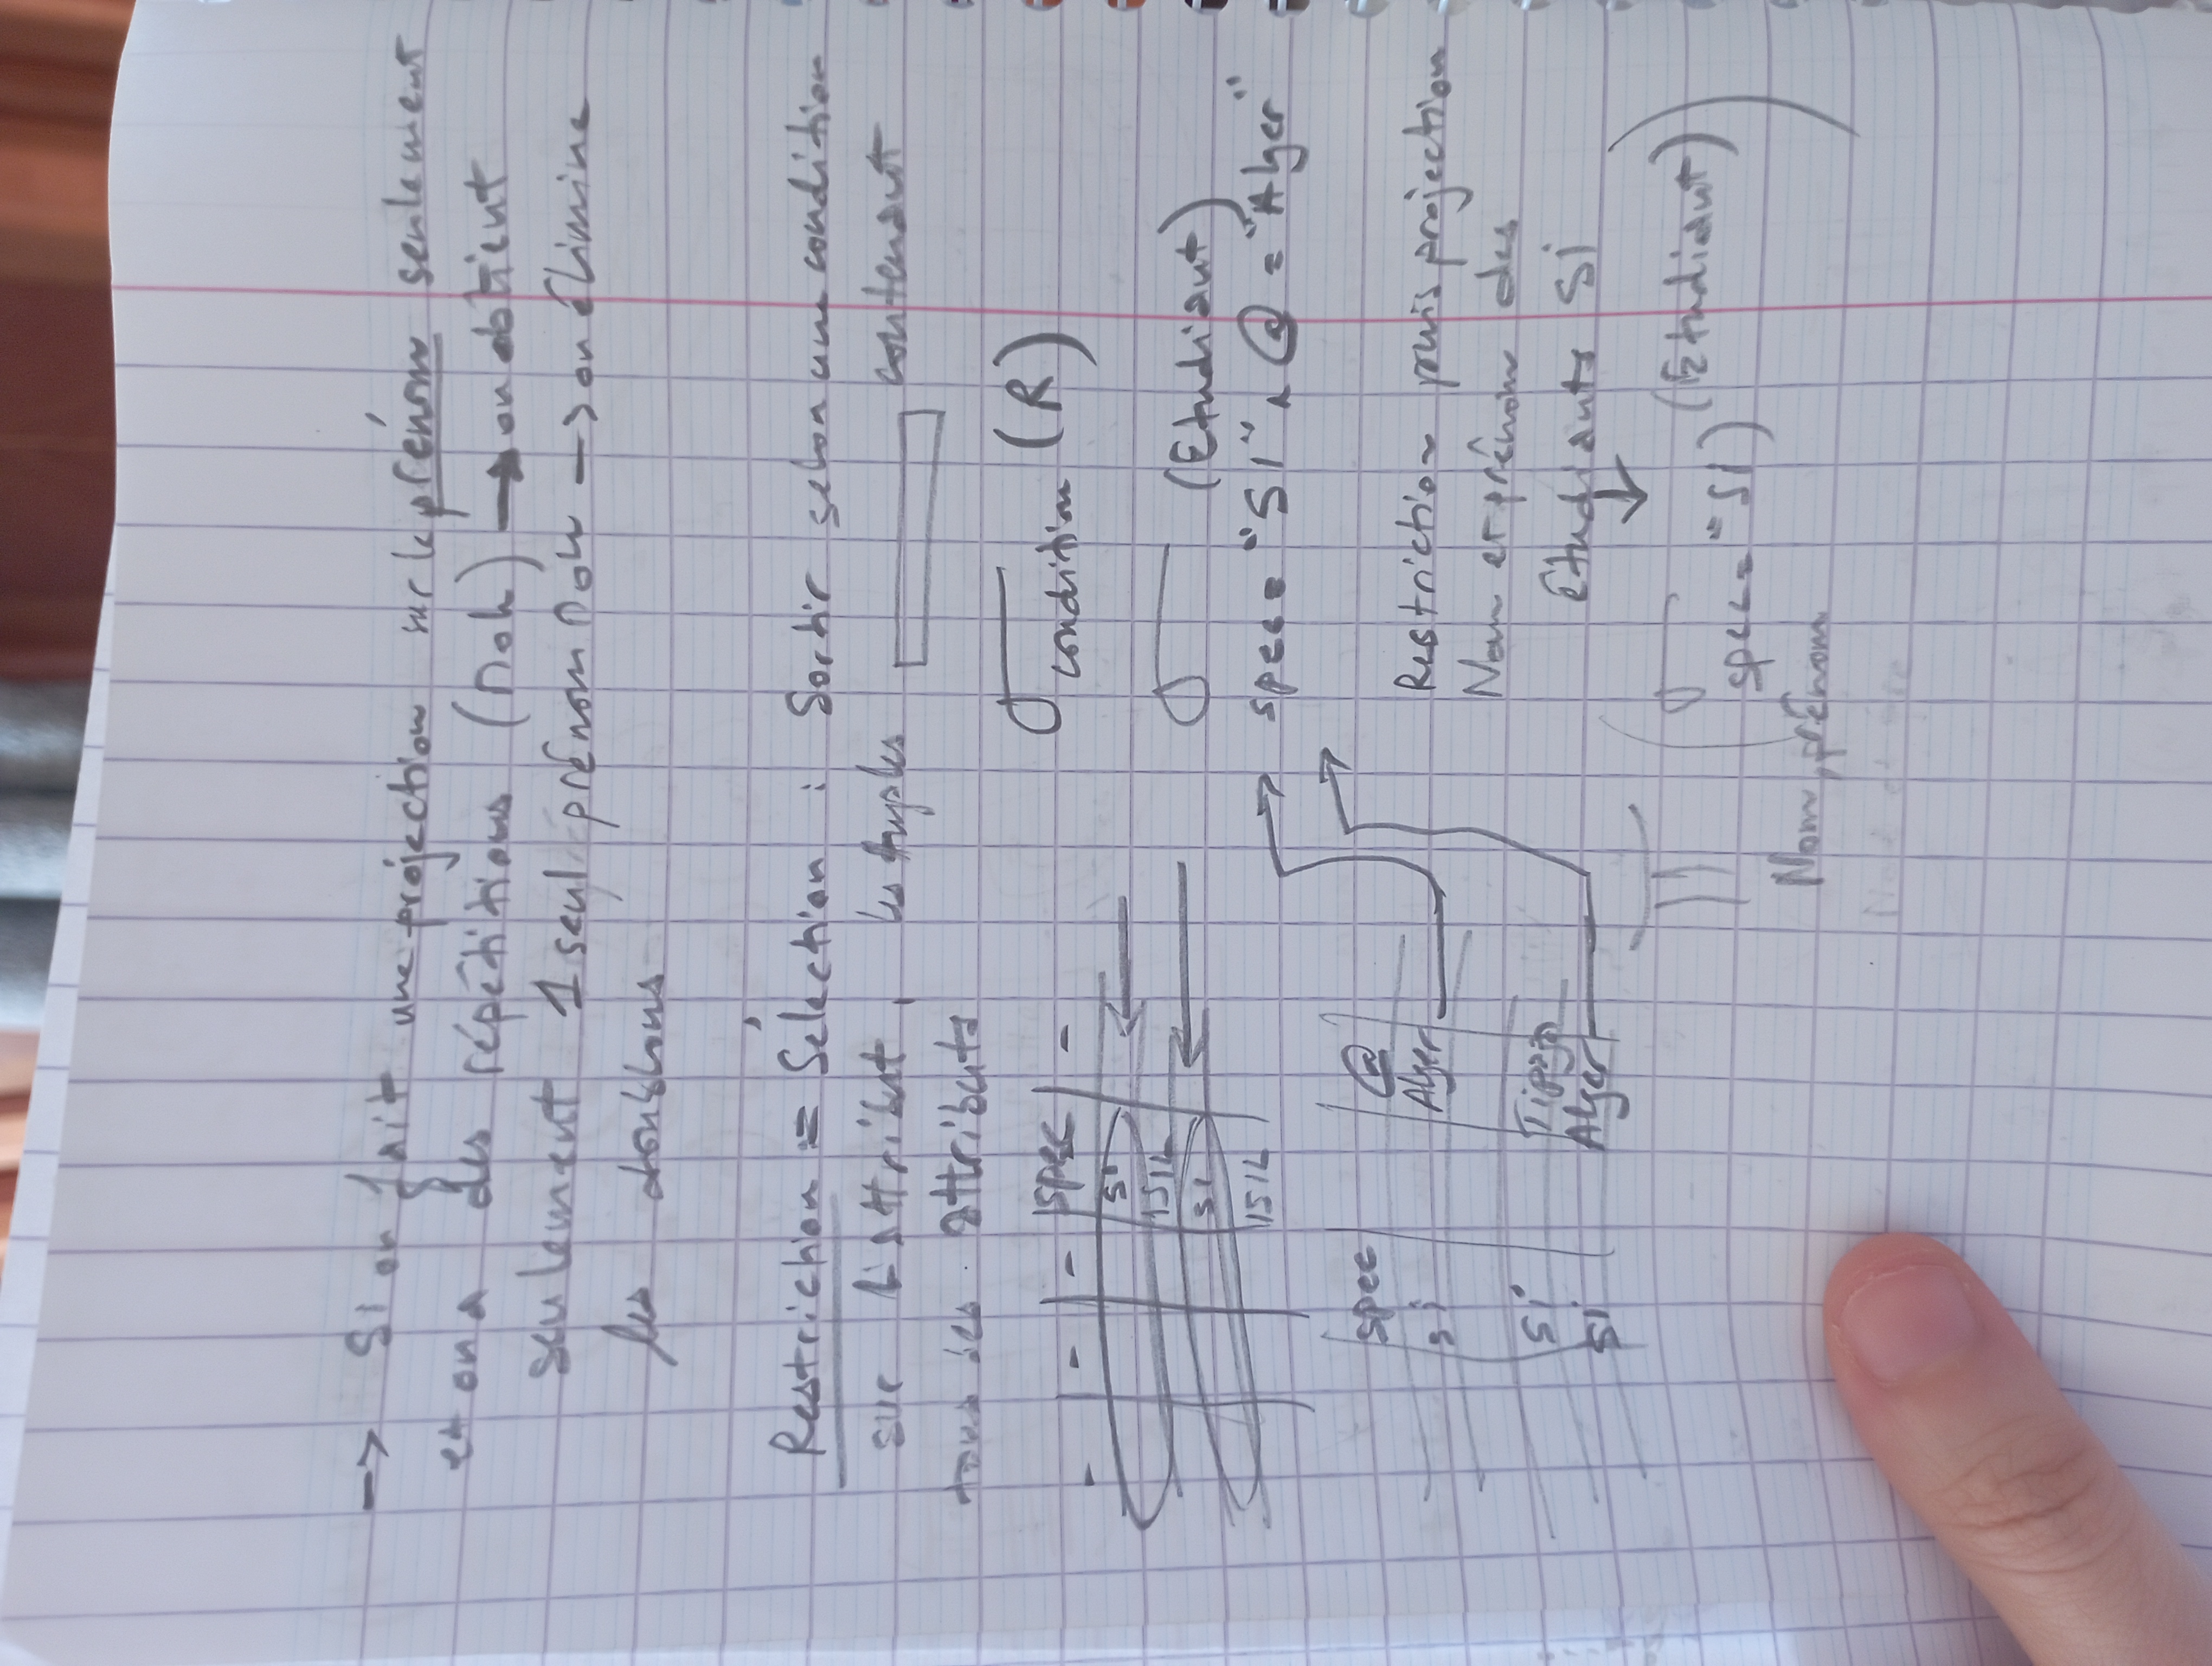 -> Si on fait une projection sur le prénom seulement
et on a des répétitions (Moh) → on obtient
seulement 1 seul prénom Moh → on élimine
les doublons
Restriction = Sélection : Sortir selon une condition
sur l'attribut, les tuples contenant
tous les attributs
σ condition (R)
- | - | - | spec | -
SI
ISIL
SI
ISIL
σ (Etudiant)
spec = "SI" ∧ @ = "Alger"
spec @
si Alger
si Tipaza
si Alger
Restriction puis projection
Nom et prénom des
étudiants SI
↓
π ( σ (Etudiant) )
spec = "SI)
Nom, prénom